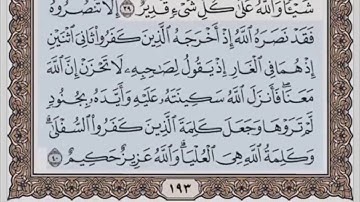 شَيْـًٔا وَٱللَّهُ عَلَىٰ كُلِّ شَىْءٍ قَدِيرٌ ٣٩ إِلَّا تَنصُرُوهُ
فَقَدْ نَصَرَهُ ٱللَّهُ إِذْ أَخْرَجَهُ ٱلَّذِينَ كَفَرُوا۟ ثَانِىَ ٱثْنَيْنِ
إِذْ هُمَا فِى ٱلْغَارِ إِذْ يَقُولُ لِصَـٰحِبِهِۦ لَا تَحْزَنْ إِنَّ ٱللَّهَ
مَعَنَا ۖ فَأَنزَلَ ٱللَّهُ سَكِينَتَهُۥ عَلَيْهِ وَأَيَّدَهُۥ بِجُنُودٍ
لَّمْ تَرَوْهَا وَجَعَلَ كَلِمَةَ ٱلَّذِينَ كَفَرُوا۟ ٱلسُّفْلَىٰ ۗ
وَكَلِمَةُ ٱللَّهِ هِىَ ٱلْعُلْيَا ۗ وَٱللَّهُ عَزِيزٌ حَكِيمٌ ٤٠
١٩٣